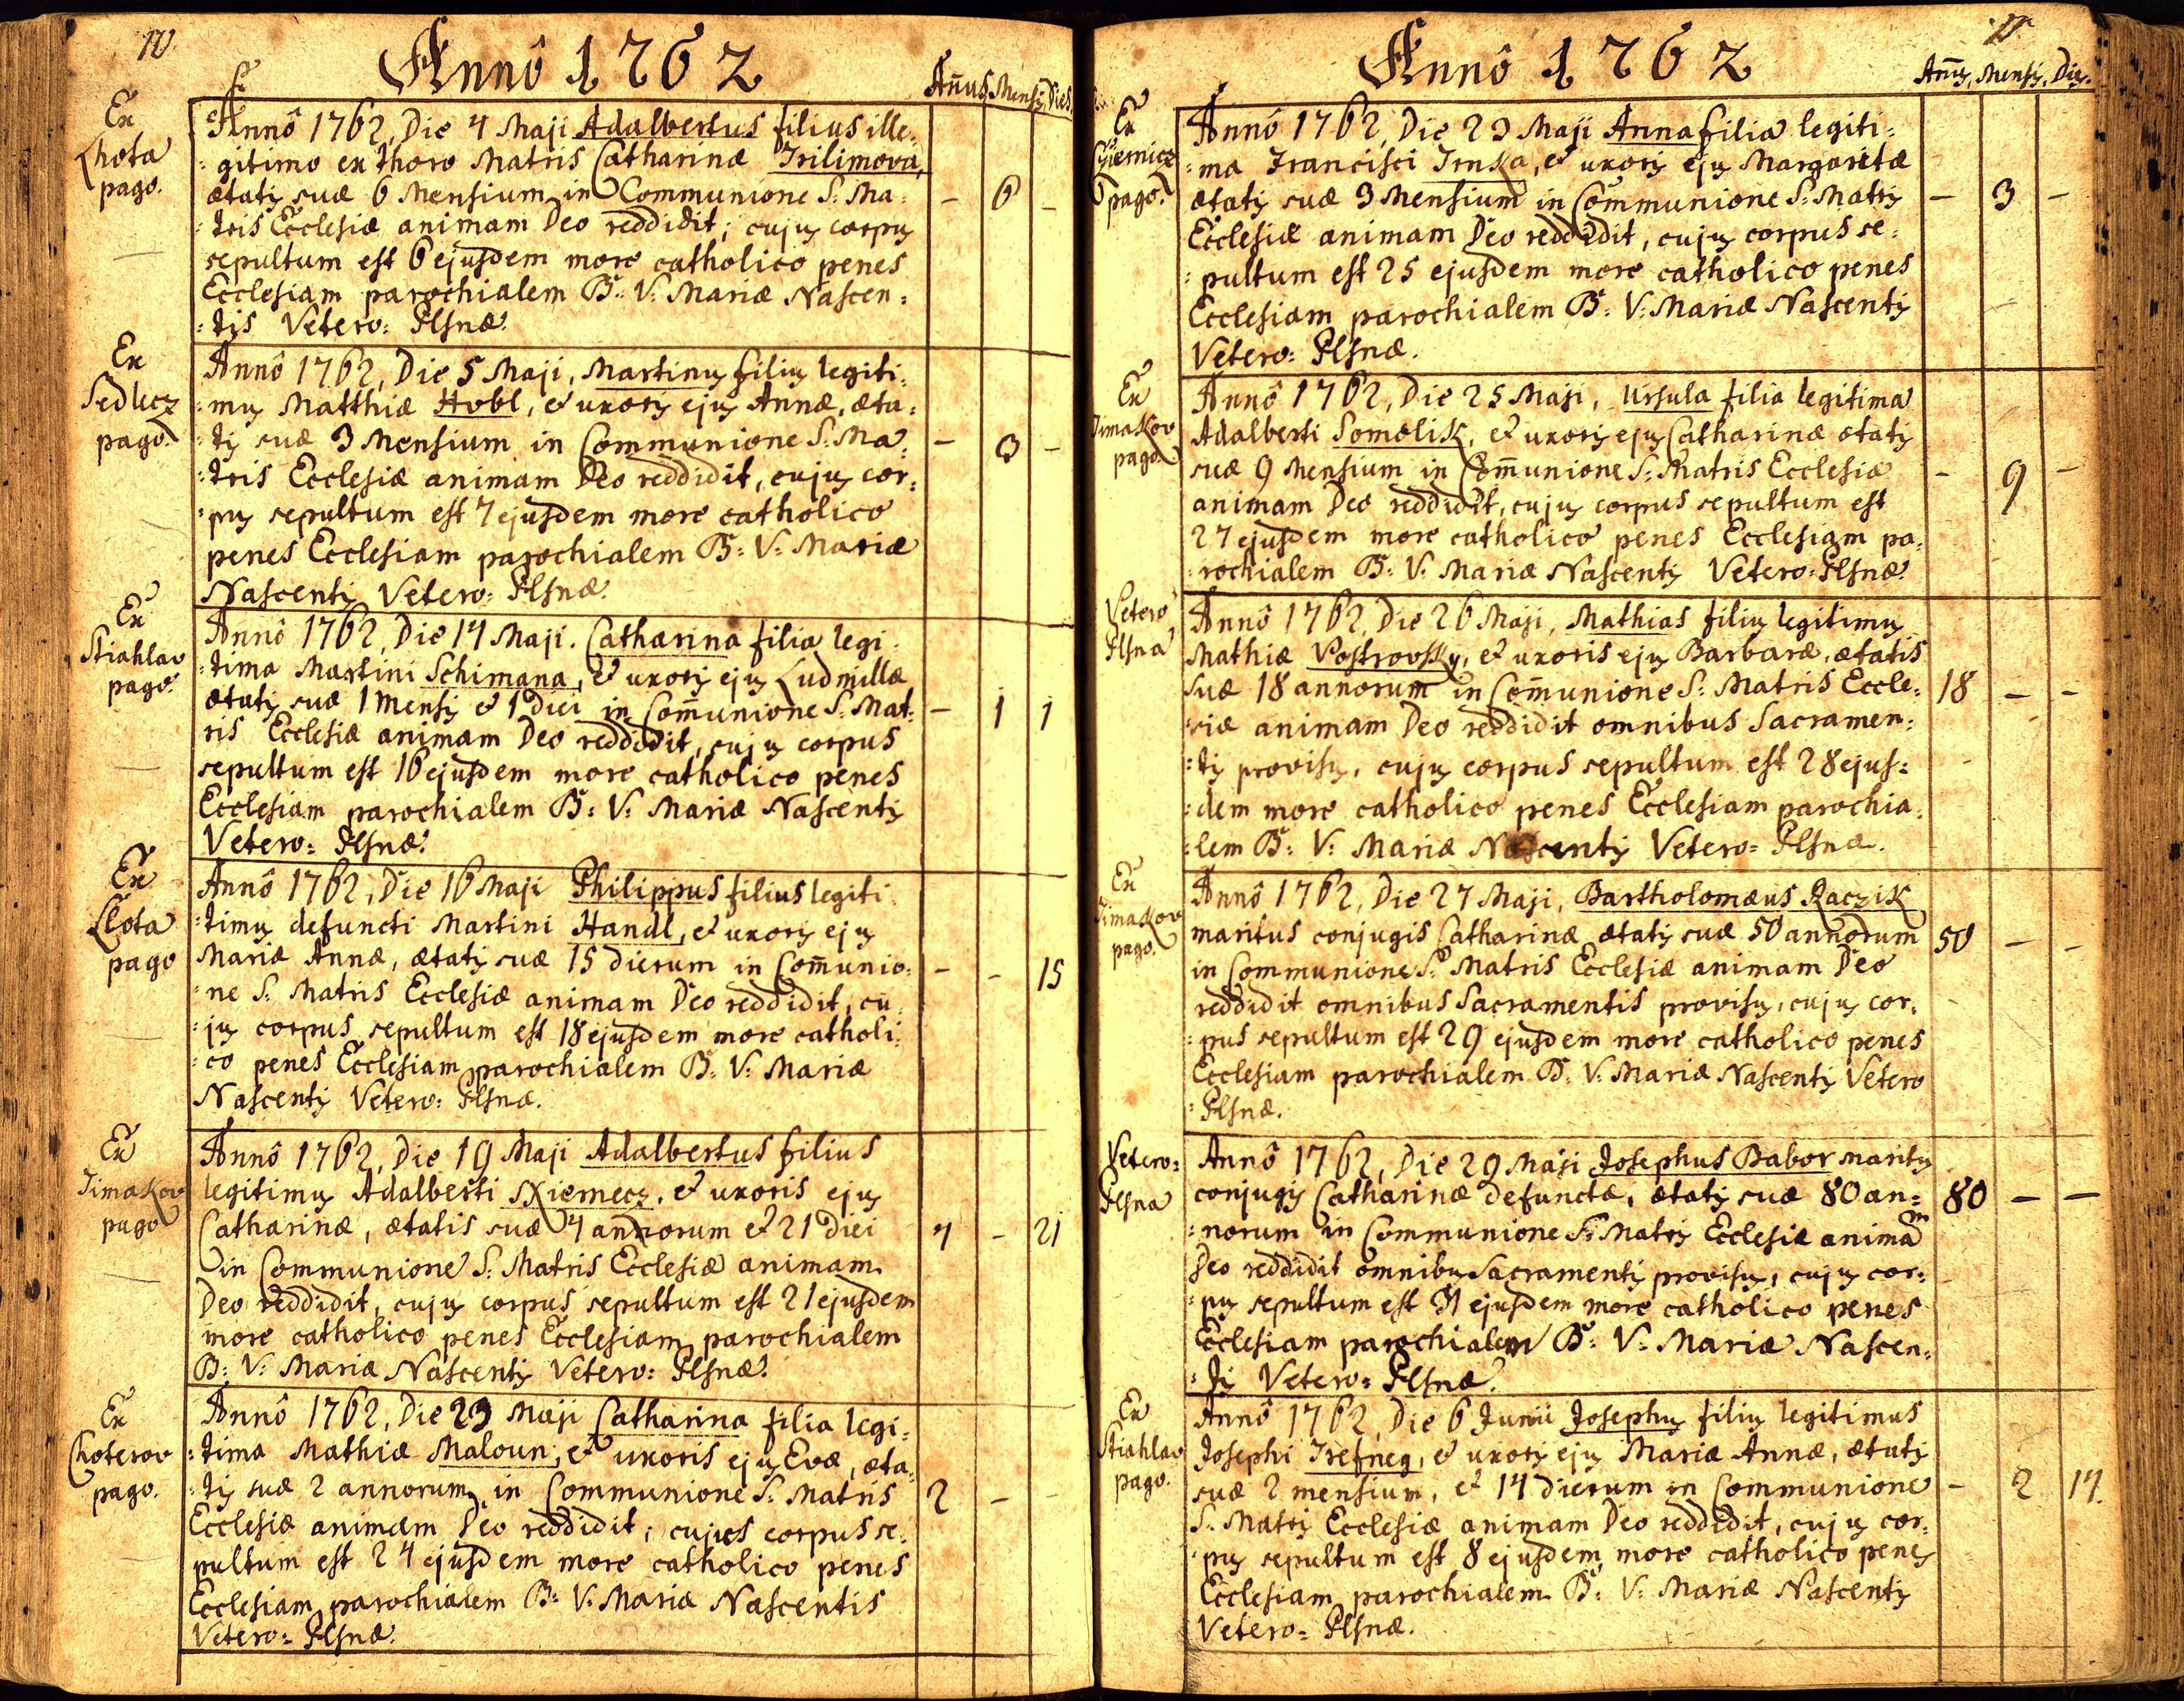 10
Annô 1762
Añus. Mensis. Dies
Ex
Lhota
pago.
Annô 1762, Die 4 Maji Adalbertus filius ille=
=gitimo ex thoro Matris Catharinæ Trilimova,
ætatis suæ 6 Mensium in Communione S: Ma=
=tris Ecclesiæ animam Deo reddidit; cujus corpus
sepultum est 6 ejusdem more catholico penes
Ecclesiam parochialem B: V: Mariæ Nascen=
=tis Vetero= Plsnæ.
— 6 —
Ex
Sedlecz
pago.
Annô 1762, Die 5 Maji, Martinus filius legiti=
=mus Matthiæ Hobl, et uxoris ejus Annæ, æta=
=tis suæ 3 Mensium in Communione S: Ma=
=tris Ecclesiæ animam Deo reddidit, cujus cor=
=pus sepultum est 7 ejusdem more catholico
penes Ecclesiam parochialem B: V: Mariæ
Nascentis Vetero= Plsnæ.
— 3 —
Ex
Stiahlav
pago.
Annô 1762, Die 14 Maji. Catharina filia legi=
=tima Martini Schimana, et uxoris ejus Ludmillæ
ætatis suæ 1 Mensis et 1 Diei in Com̄unione S: Mat=
ris Ecclesiæ animam Deo reddidit, cujus corpus
sepultum est 16 ejusdem more catholico penes
Ecclesiam parochialem B: V: Mariæ Nascentis
Vetero= Plsnæ.
— 1 1
Ex
Lhota
pago
Annô 1762, Die 16 Maji Philippus filius legiti
=timus defuncti Martini Handl, et uxoris ejus
Mariæ Annæ, ætatis suæ 15 dierum in Com̄unio=
=ne S: Matris Ecclesiæ animam Deo reddidit, cu
=jus corpus sepultum est 18 ejusdem more catholi=
=co penes Ecclesiam parochialem B: V: Mariæ
Nascentis Vetero= Plsnæ.
— — 15
Ex
Timakov
pago
Annô 1762, Die 19 Maji Adalbertus filius
legitimus Adalberti Niemecz, et uxoris ejus
Catharinæ, ætatis suæ 4 annorum et 21 Diei
in Communione S: Matris Ecclesiæ animam
Deo reddidit, cujus corpus sepultum est 21 ejusdem
more catholico penes Ecclesiam parochialem
B: V: Mariæ Nascentis Vetero= Plsnæ.
4 — 21
Ex
Choterov
pago.
Annô 1762, Die 23 Maji Catharina filia legi=
=tima Mathiæ Maloun, et uxoris ejus Evæ, æta=
=tis suæ 2 annorum in Communione S: Matris
Ecclesiæ animam Deo reddidit, cujus corpus se=
pultum est 24 ejusdem more catholico penes
Ecclesiam parochialem B: V: Mariæ Nascentis
Vetero= Plsnæ.
2 — —
Annô 1762
Añus. Mensis. Dies.
Ex
pago.
Annô 1762, Die 23 Maji Anna filia legiti=
=ma Francisci Trnka, et uxoris ejus Margaretæ
ætatis suæ 3 Mensium in Communione S: Matris
Ecclesiæ animam Deo reddidit, cujus corpus se=
=pultum est 25 ejusdem more catholico penes
Ecclesiam parochialem B: V: Mariæ Nascentis
Vetero= Plsnæ.
— 3 —
Ex
Timakov
pago.
Annô 1762, Die 25 Maji, Ursula filia legitima
Adalberti Somolik, et uxoris ejus Catharinæ ætatis
suæ 9 Mensium in Com̄unione S: Matris Ecclesiæ
animam Deo reddidit, cujus corpus sepultum est
27 ejusdem more catholico penes Ecclesiam pa=
=rochialem B: V: Mariæ Nascentis Vetero= Plsnæ.
— 9 —
Vetero
Plsna
Annô 1762, Die 26 Maji, Mathias filius legitimus
Mathiæ Vostrovsky, et uxoris ejus Barbaræ, ætatis
suæ 18 annorum in Com̄unione S: Matris Eccle=
=siæ animam Deo reddidit omnibus Sacramen=
=tis provisus, cujus corpus sepultum est 28 ejus=
=dem more catholico penes Ecclesiam parochia=
=lem B: V: Mariæ Nascentis Vetero= Plsnæ.
18 — —
Ex
Timakov
pago.
Annô 1762, Die 27 Maji, Bartholomæus Raczik
maritus conjugis Catharinæ ætatis suæ 50 annorum
in Communione S: Matris Ecclesiæ animam Deo
reddidit omnibus Sacramentis provisus, cujus cor=
=pus sepultum est 29 ejusdem more catholico penes
Ecclesiam parochialem B: V: Mariæ Nascentis Vetero
=Plsnæ.
50 — —
Vetero=
Plsna
Annô 1762, Die 29 Maji Josephus Babor maritus
conjugis Catharinæ defunctæ, ætatis suæ 80 an=
=norum in Communione S: Matris Ecclesiæ animam
Deo reddidit omnibus Sacramentis provisus, cujus cor=
=pus sepultum est 31 ejusdem more catholico penes
Ecclesiam parochialem B: V: Mariæ Nascen=
=tis Vetero= Plsnæ.
80 — —
Ex
Stiahlav
pago.
Annô 1762, Die 6 Junii Josephus filius legitimus
Josephi Trefneg, et uxoris ejus Mariæ Annæ, ætatis
suæ 2 mensium, et 14 dierum in Communione
S: Matris Ecclesiæ animam Deo reddidit, cujus cor=
=pus sepultum est 8 ejusdem more catholico penes
Ecclesiam parochialem B: V: Mariæ Nascentis
Vetero= Plsnæ.
— 2 14.